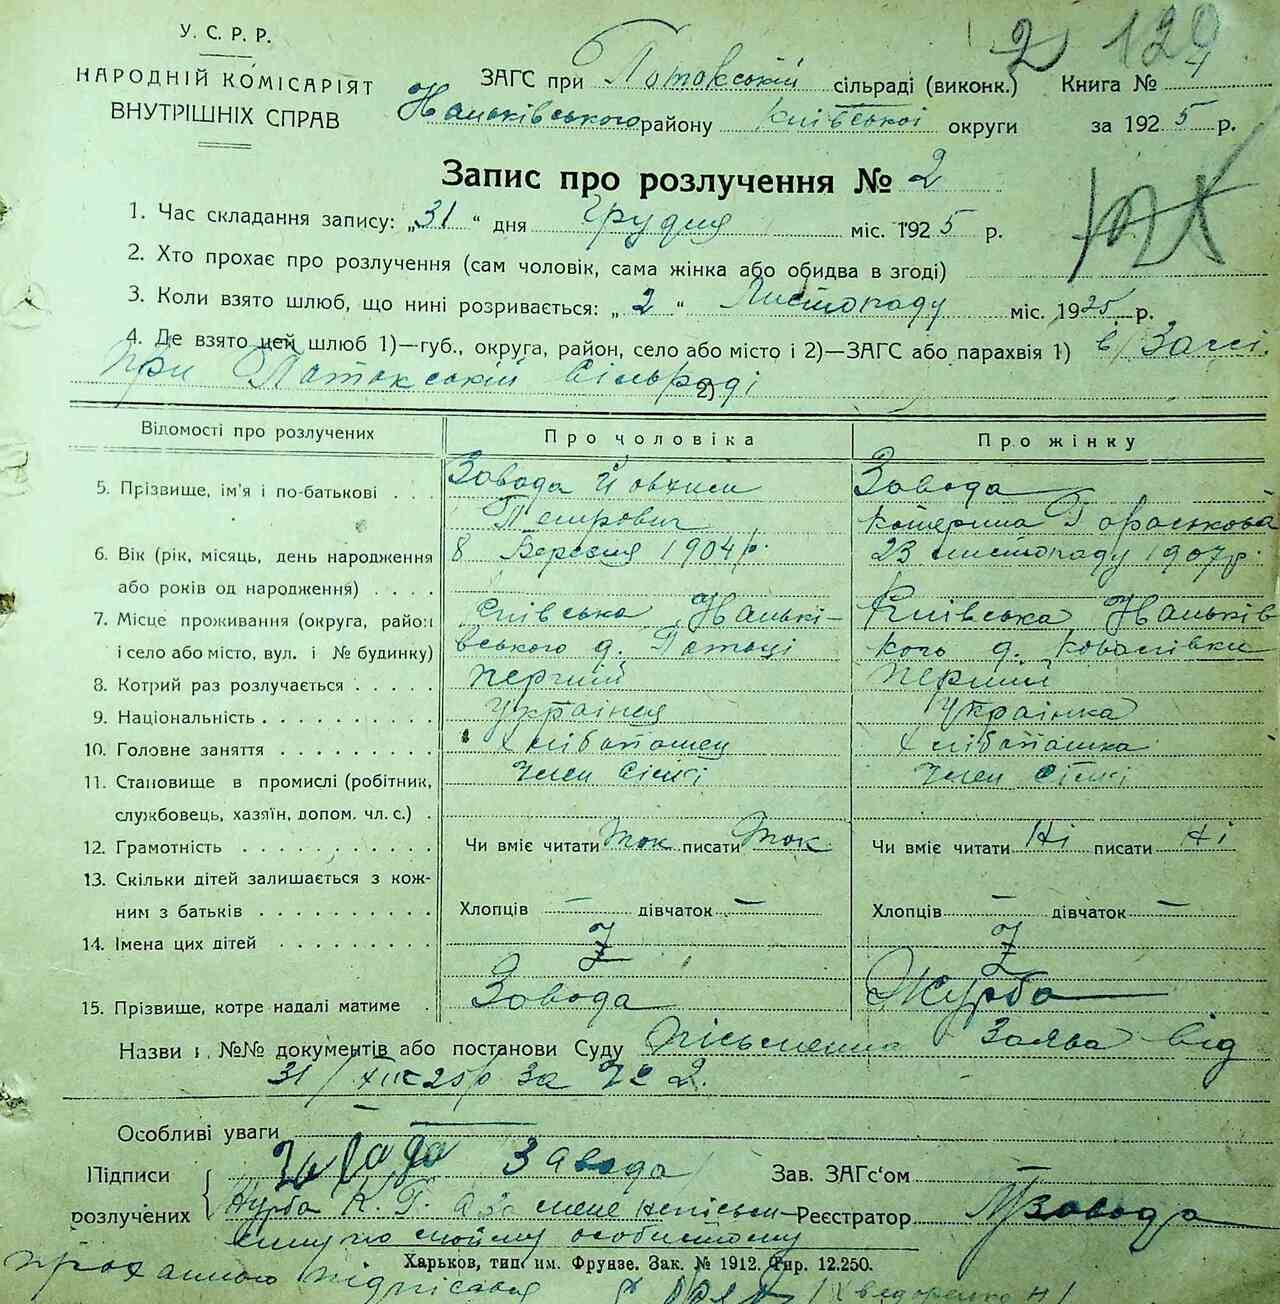 У. С. Р. Р.
НАРОДНІЙ КОМІСАРІЯТ
ВНУТРІШНІХ СПРАВ
2 129
ЗАГС при Потокській сільраді (виконк.) Книга №
району Київської округи за 1925 р.
Запис про розлучення № 2
1. Час складання запису: „31“ дня Грудня міс. 1925 р.
2. Хто прохає про розлучення (сам чоловік, сама жінка або обидва в згоді)
3. Коли взято шлюб, що нині розривається: „2“ Листопаду міс. 1925 р.
4. Де взято цей шлюб 1)—губ., округа, район, село або місто і 2)—ЗАГС або парахвія 1) в Загсі
при Потокській Сільраді 2)
Відомості про розлучених Про чоловіка Про жінку
5. Прізвище, ім'я і по-батькові Завода Завода
Петрович Катерина
6. Вік (рік, місяць, день народження 8 Березня 1904 р. 23 листопаду 1907 р.
або років од народження)
7. Місце проживання (округа, район Київська Київська
і село або місто, вул. і № будинку) вського д. Потоці кого д. Ковалівки
8. Котрий раз розлучається перший перший
9. Національність Українец Українка
10. Головне заняття хлібопашец хлібопашка
11. Становище в промислі (робітник, Член сімї Член сімї
службовець, хазяїн, допом. чл. с.)
12. Грамотність Чи вміє читати так писати так Чи вміє читати Ні писати Ні
13. Скільки дітей залишається з кож-
ним з батьків Хлопців — дівчаток — Хлопців — дівчаток —
14. Імена цих дітей
15. Прізвище, котре надалі матиме Завода Журба
Назви і №№ документів або постанови Суду Письменна Заява від
31/XII 25 р за № 2.
Особливі уваги
Підписи Завода Зав. ЗАГС'ом
розлучених Журба К. Г. а за мене неписьмен- Реєстратор Завода
ну по моїму особистому
Харьков, тип. им. Фрунзе. Зак. № 1912. Тир. 12.250.
проханню підписався